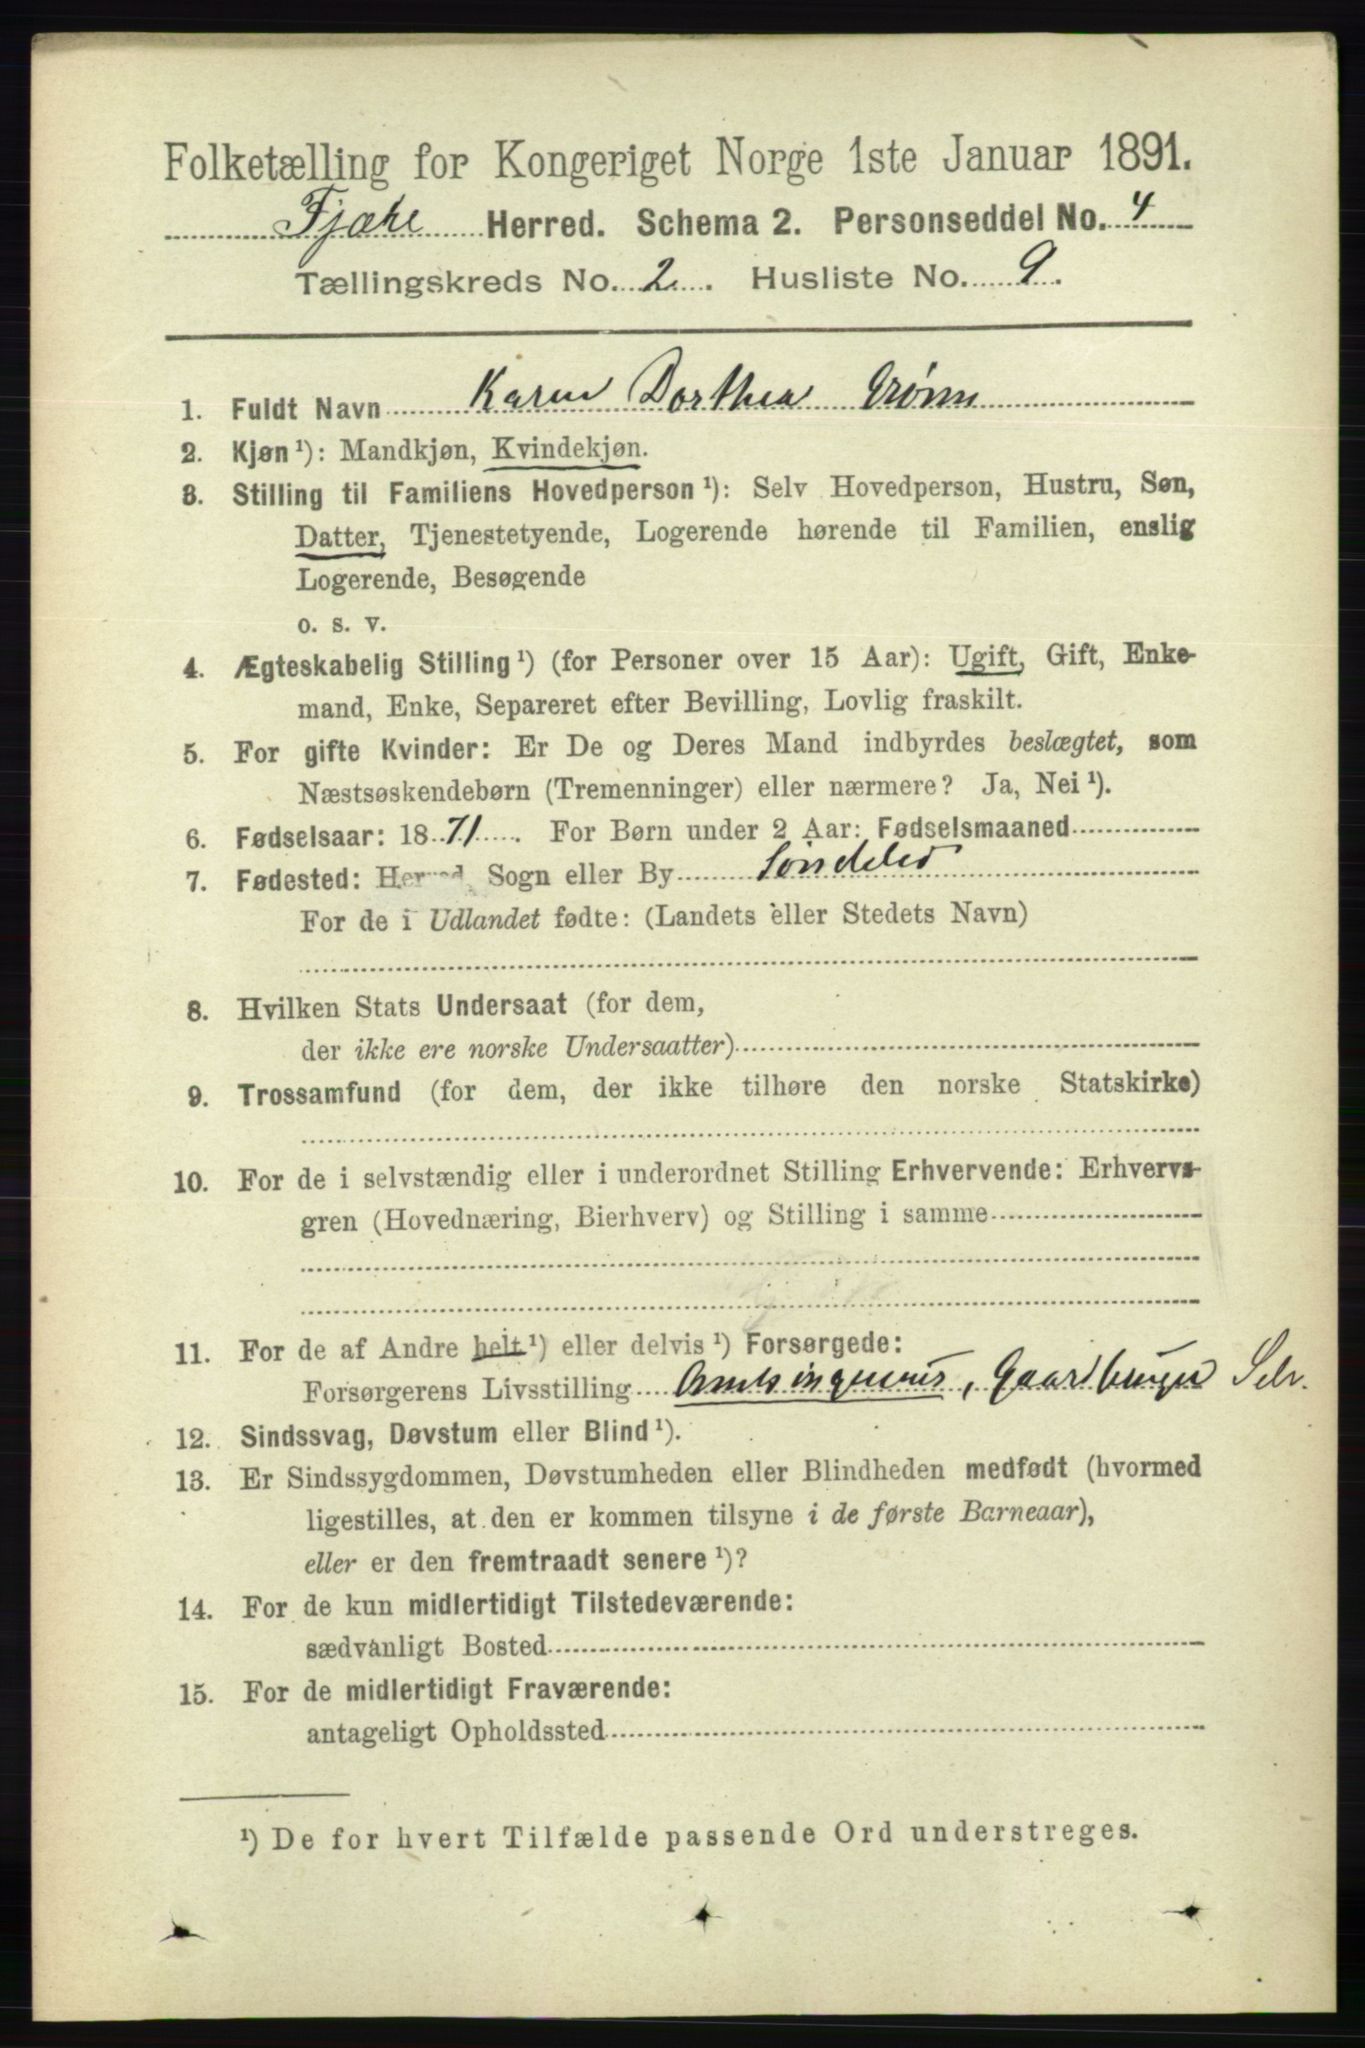 Folketælling for Kongeriget Norge 1ste Januar 1891.
Fjære Herred. Schema 2. Personseddel No. 4
Tællingskreds No. 2. Husliste No. 9.
1. Fuldt Navn Karen Dorthea Grønn
2. Kjøn ¹): Mandkjøn, Kvindekjøn.
3. Stilling til Familiens Hovedperson ¹): Selv Hovedperson, Hustru, Søn,
Datter, Tjenestetyende, Logerende hørende til Familien, enslig
Logerende, Besøgende
o. s. v.
4. Ægteskabelig Stilling ¹) (for Personer over 15 Aar): Ugift, Gift, Enke-
mand, Enke, Separeret efter Bevilling, Lovlig fraskilt.
5. For gifte Kvinder: Er De og Deres Mand indbyrdes beslægtet, som
Næstsøskendebørn (Tremenninger) eller nærmere? Ja, Nei ¹).
6. Fødselsaar: 1871. For Børn under 2 Aar: Fødselsmaaned
7. Fødested: Herred, Sogn eller By Søndeled
For de i Udlandet fødte: (Landets eller Stedets Navn)
8. Hvilken Stats Undersaat (for dem,
der ikke ere norske Undersaatter)
9. Trossamfund (for dem, der ikke tilhøre den norske Statskirke)
10. For de i selvstændig eller i underordnet Stilling Erhvervende: Erhvervs-
gren (Hovednæring, Bierhverv) og Stilling i samme
11. For de af Andre helt ¹) eller delvis ¹) Forsørgede:
Forsørgerens Livsstilling Amtsingeniør, Gaardbruger Selv.
12. Sindssvag, Døvstum eller Blind ¹).
13. Er Sindssygdommen, Døvstumheden eller Blindheden medfødt (hvormed
ligestilles, at den er kommen tilsyne i de første Barneaar),
eller er den fremtraadt senere ¹)?
14. For de kun midlertidigt Tilstedeværende:
sædvanligt Bosted
15. For de midlertidigt Fraværende:
antageligt Opholdssted
¹) De for hvert Tilfælde passende Ord understreges.